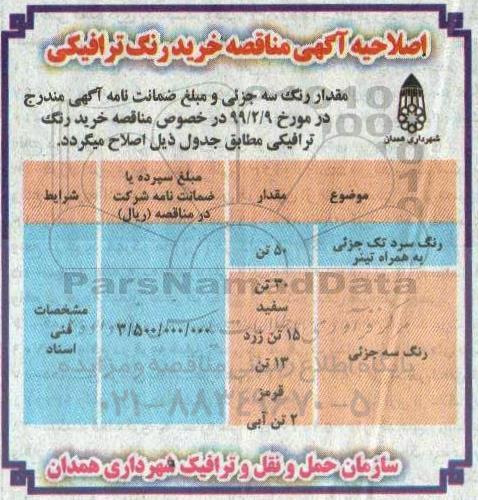 اصلاحیه آگهی مناقصه خرید رنگ ترافیکی
شهرداری همدان
مقدار رنگ سه جزئی و مبلغ ضمانت نامه آگهی مندرج
در مورخ ۹۹/۲/۹ در خصوص مناقصه خرید رنگ
ترافیکی مطابق جدول ذیل اصلاح میگردد.
موضوع
مقدار
مبلغ سپرده یا
ضمانت نامه شرکت
در مناقصه (ریال)
شرایط
رنگ سرد تک جزئی
به همراه تینر
۵۰ تن
رنگ سه جزئی
۳۰ تن
سفید
۱۵ تن زرد
۱۳ تن
قرمز
۲ تن آبی
۳/۵۰۰/۰۰۰/۰۰۰
مشخصات
فنی
اسناد
ParsNamadData
پایگاه اطلاع رسانی مناقصه و مزایده
۰۲۱-۸۸۳۴۹۶۷۰-۵
سازمان حمل و نقل و ترافیک شهرداری همدان